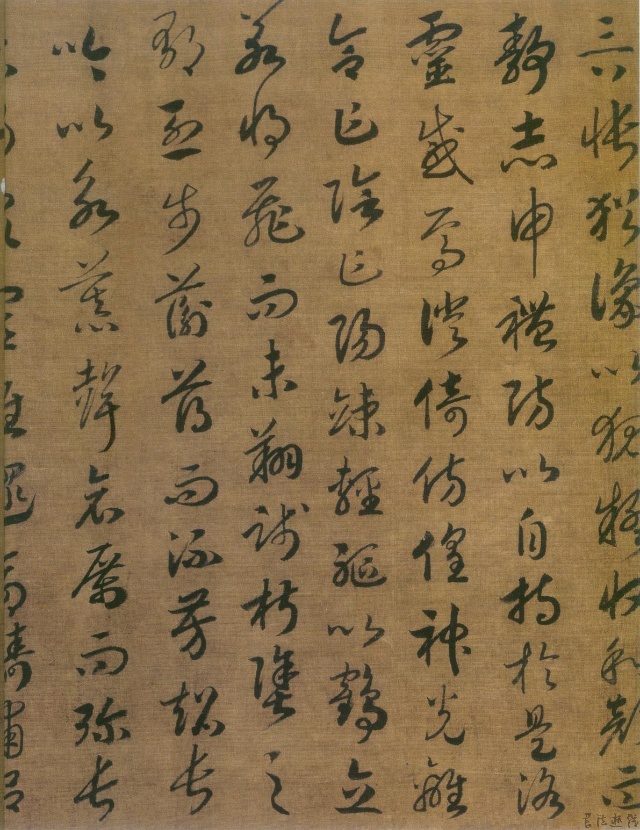 言悵猶豫以狐疑收和顏而
靜志申禮防以自持於是洛
靈感焉徙倚仿偟神光離
合乍陰乍陽竦輕軀以鶴立
若將飛而未翔踐椒塗之
郁烈步蘅薄而流芳超長
吟以永慕聲哀厲而彌長
靈雜遝命儔嘯侶